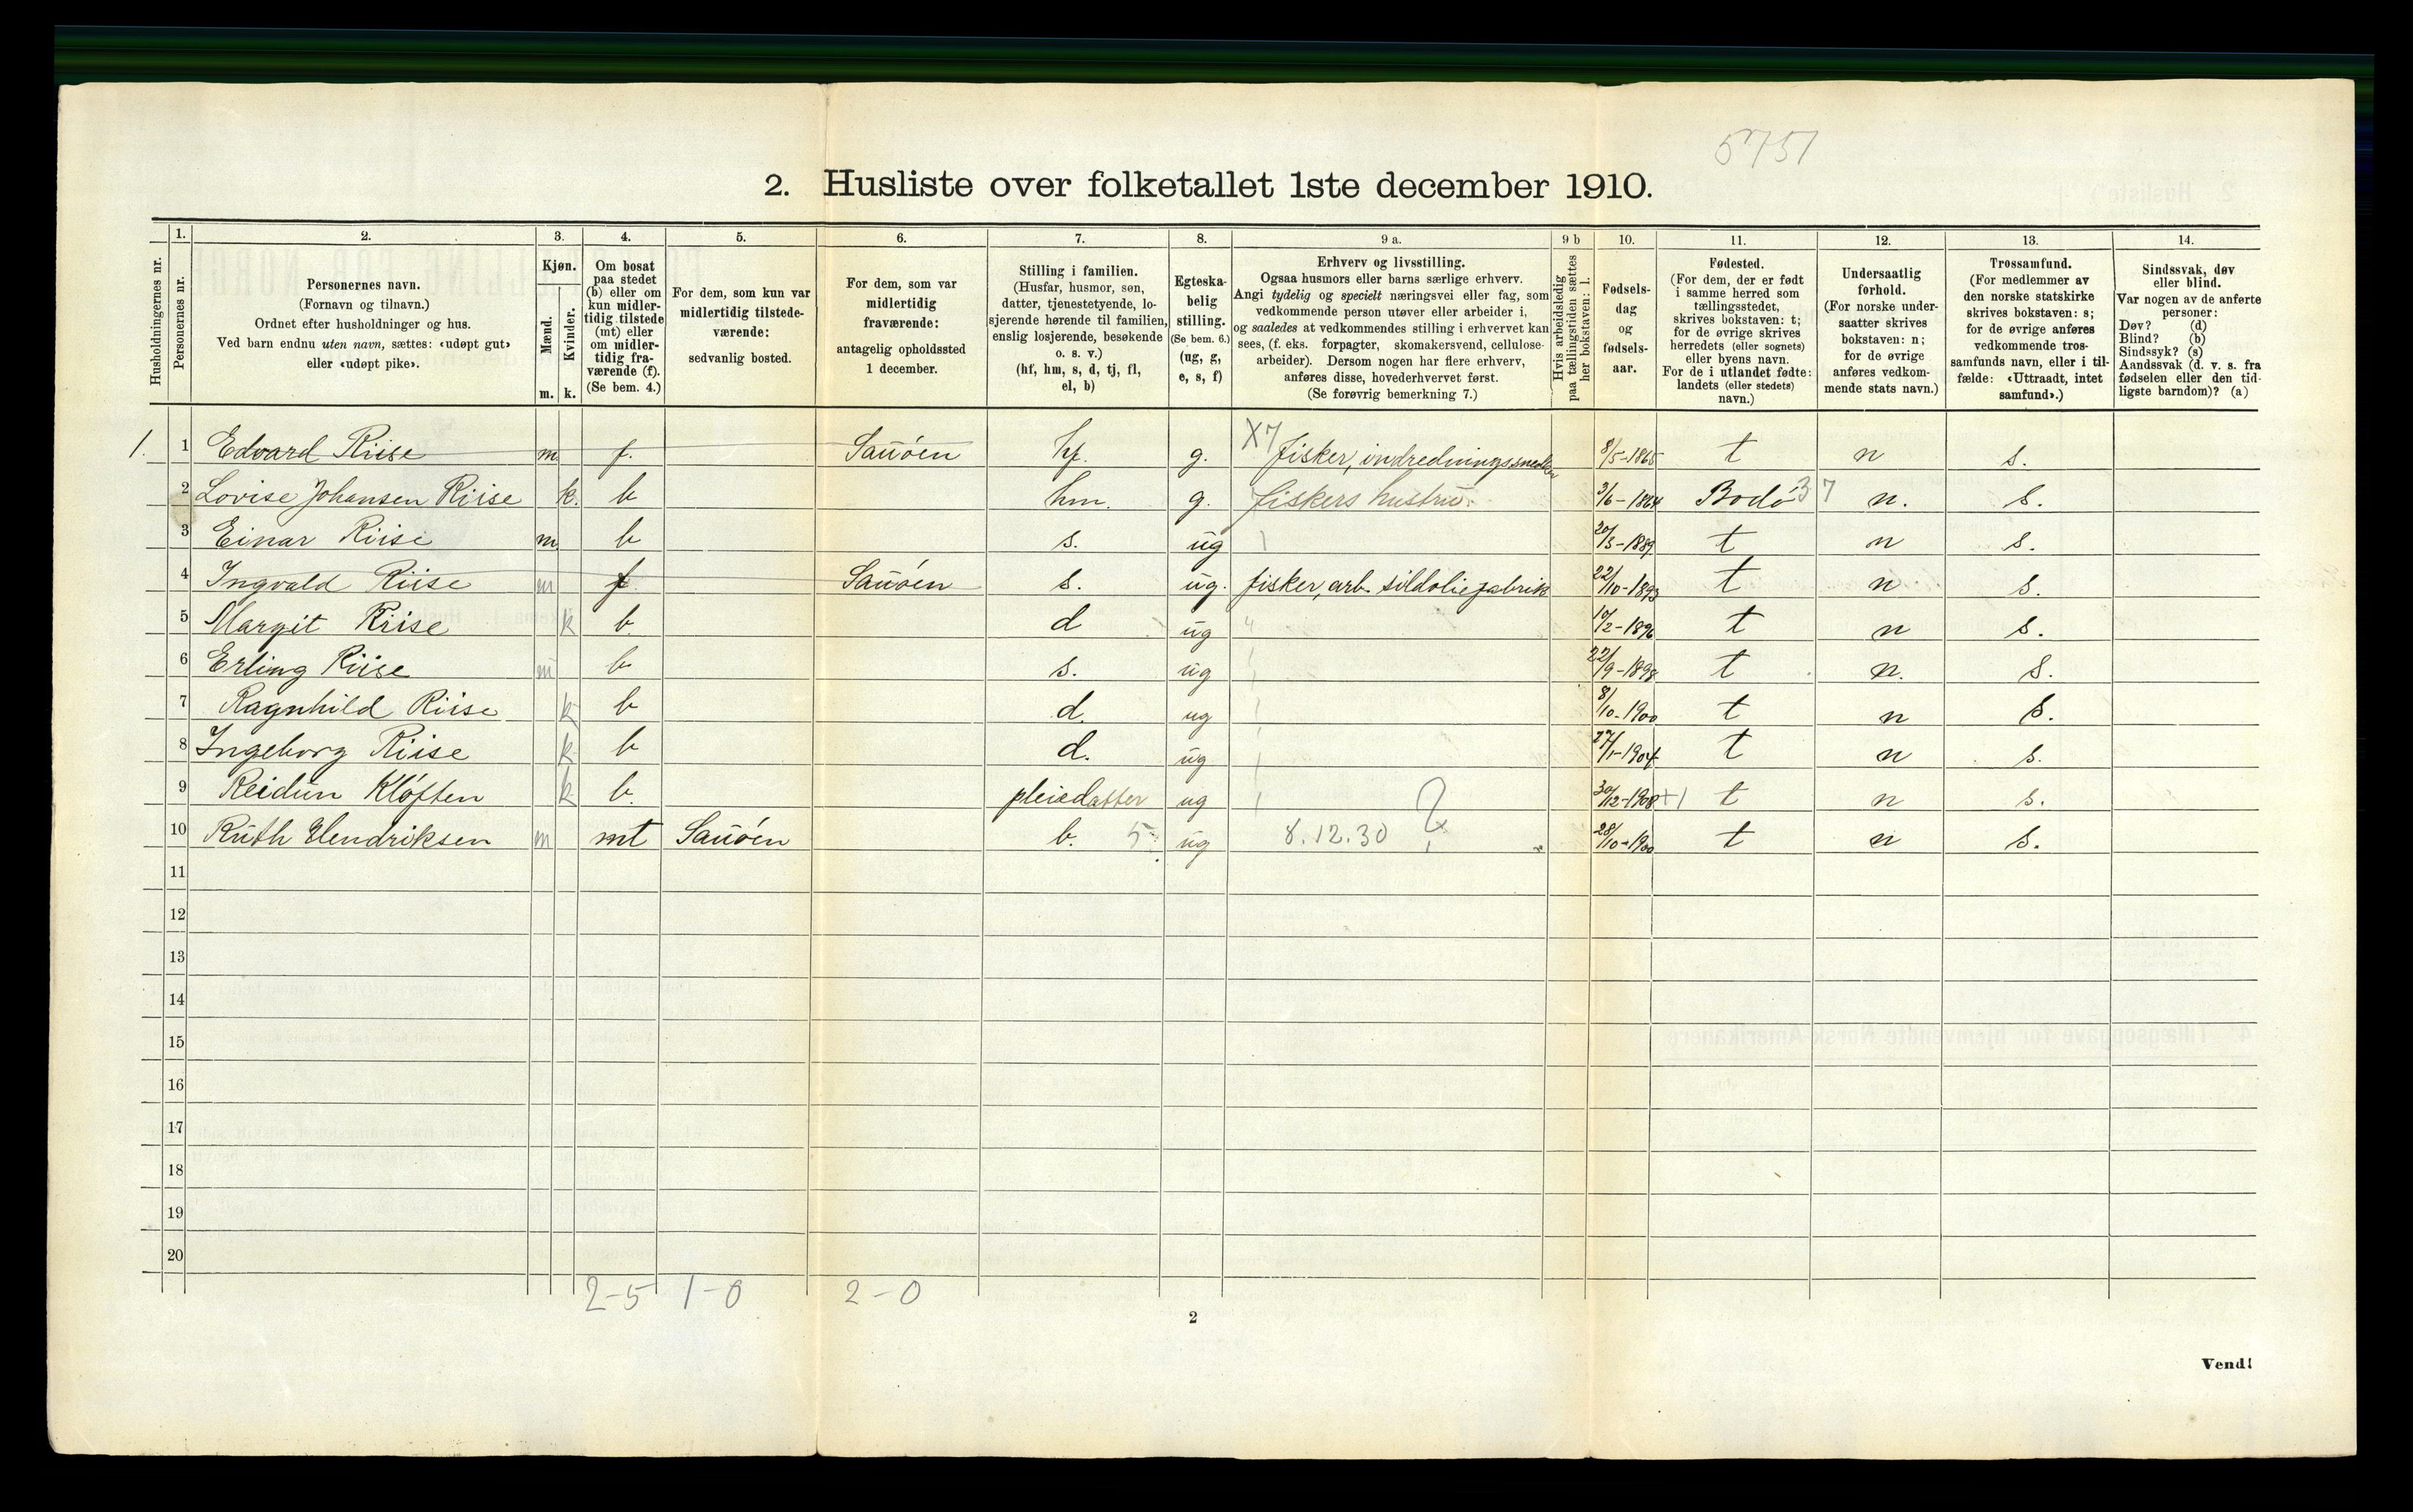 5751
2. Husliste over folketallet 1ste december 1910.
Husholdningernes nr.
1. Personernes nr.
2. Personernes navn.
(Fornavn og tilnavn.)
Ordnet efter husholdninger og hus.
Ved barn endnu uten navn, sættes: «udøpt gut»
eller «udøpt pike».
3. Kjøn.
Mænd. Kvinder.
m. k.
4. Om bosat
paa stedet
(b) eller om
kun midler-
tidig tilstede
(mt) eller
om midler-
tidig fra-
værende (f).
(Se bem. 4.)
5. For dem, som kun var
midlertidig tilstede-
værende:
sedvanlig bosted.
6. For dem, som var
midlertidig
fraværende:
antagelig opholdssted
1 december.
7. Stilling i familien.
(Husfar, husmor, søn,
datter, tjenestetyende, lo-
sjerende hørende til familien,
enslig losjerende, besøkende
o. s. v.)
(hf, hm, s, d, tj, fl,
el, b)
8. Egteska-
belig
stilling.
(Se bem. 6.)
(ug, g,
e, s, f)
9 a. Erhverv og livsstilling.
Ogsaa husmors eller barns særlige erhverv.
Angi tydelig og specielt næringsvei eller fag, som
vedkommende person utøver eller arbeider i,
og saaledes at vedkommendes stilling i erhvervet kan
sees, (f. eks. forpagter, skomakersvend, cellulose-
arbeider). Dersom nogen har flere erhverv,
anføres disse, hovederhvervet først.
(Se forøvrig bemerkning 7.)
9 b Hvis arbeidsledig
paa tællingstiden sættes
her bokstaven: l.
10. Fødsels-
dag
og
fødsels-
aar.
11. Fødested.
(For dem, der er født
i samme herred som
tællingsstedet,
skrives bokstaven: t;
for de øvrige skrives
herredets (eller sognets)
eller byens navn.
For de i utlandet fødte:
landets (eller stedets)
navn.)
12. Undersaatlig
forhold.
(For norske under-
saatter skrives
bokstaven: n;
for de øvrige
anføres vedkom-
mende stats navn.)
13. Trossamfund.
(For medlemmer av
den norske statskirke
skrives bokstaven: s;
for de øvrige anføres
vedkommende tros-
samfunds navn, eller i til-
fælde: «Uttraadt, intet
samfund».)
14. Sindssvak, døv
eller blind.
Var nogen av de anførte
personer:
Døv? (d)
Blind? (b)
Sindssyk? (s)
Aandssvak (d. v. s. fra
fødselen eller den tid-
ligste barndom)? (a)
1. 1 Edvard Riise m f. Sauøen hf. g. X7 fisker, indredningssnedker 8/5-1865 t n s.
2 Lovise Johansen Riise k. b hm. g. fiskers hustru 3/6-1864 Bodø 37 n. s.
3 Einar Riise m b s. ug 20/3-1889 t n s.
4 Ingvald Riise m f Sauøen s. ug. fisker, arb. sildoliefabrik 22/10-1893 t n s.
5 Margit Riise k b. d ug 10/2-1896 t n s.
6 Erling Riise m b s. ug 22/9-1898 t n. s.
7 Ragnhild Riise k b d. ug 8/10-1900 t n s.
8 Ingeborg Riise k b d. ug 27/1-1904 t n s.
9 Reidun Kløften k b. pleiedatter ug 30/12-1908 +1 t n s.
10 Ruth Hendriksen m mt Sauøen b. 5 ug 8.12.30 ? 28/10-1900 t n s.
11
12
13
14
15
16
17
18
19
20
2-5 1-0 2-0
2
Vend!